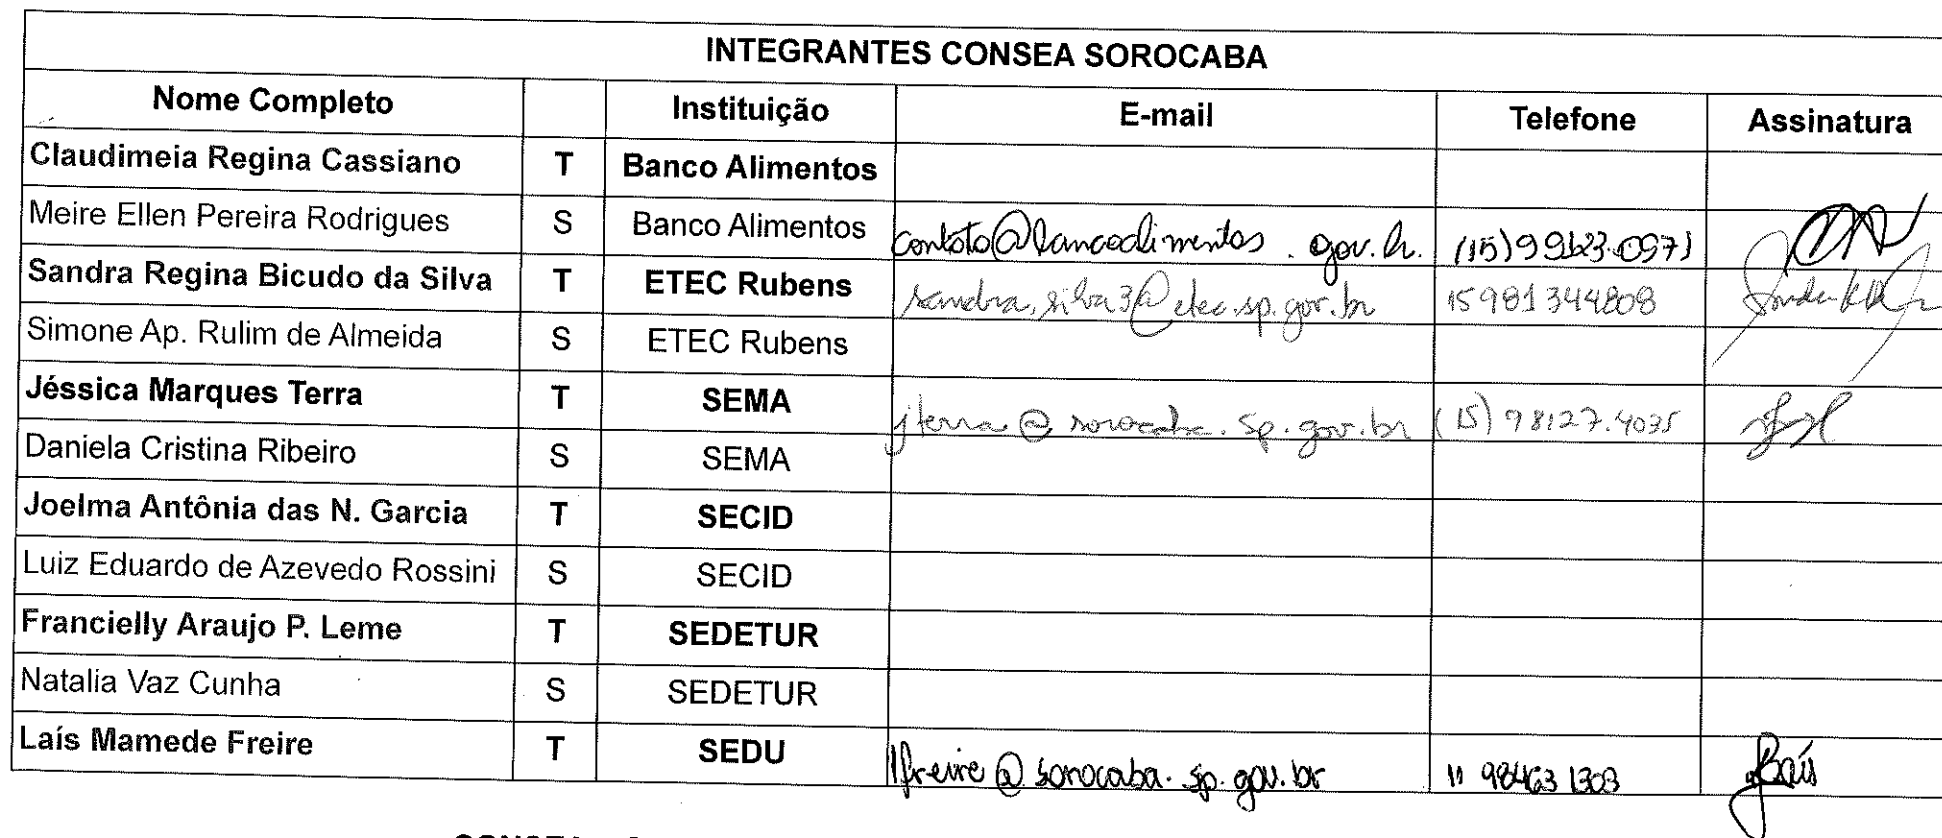 INTEGRANTES CONSEA SOROCABA
Nome Completo Instituição E-mail Telefone Assinatura
Claudimeia Regina Cassiano T Banco Alimentos
Meire Ellen Pereira Rodrigues S Banco Alimentos contato@bancoalimentos.gov.br (15)99623.0971
Sandra Regina Bicudo da Silva T ETEC Rubens sandra.silva3@etec.sp.gov.br 15981344808
Simone Ap. Rulim de Almeida S ETEC Rubens
Jéssica Marques Terra T SEMA jterra@sorocaba.sp.gov.br (15) 98127.4035
Daniela Cristina Ribeiro S SEMA
Joelma Antônia das N. Garcia T SECID
Luiz Eduardo de Azevedo Rossini S SECID
Francielly Araujo P. Leme T SEDETUR
Natalia Vaz Cunha S SEDETUR
Laís Mamede Freire T SEDU lfreire@sorocaba.sp.gov.br 11 98463 1303 Laís